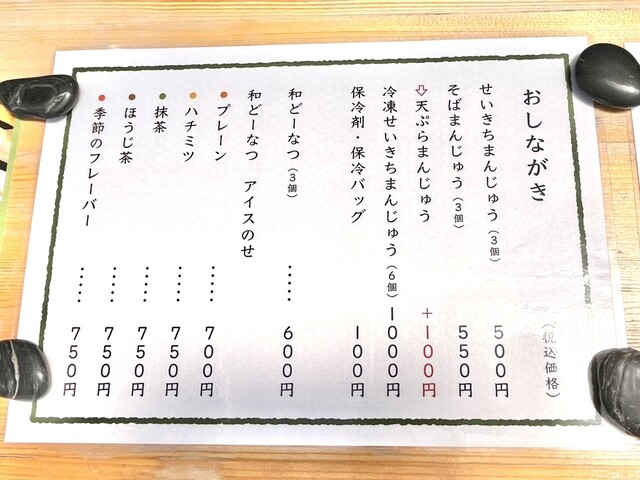 おしながき
（税込価格）
せいきちまんじゅう（３個） ５００円
そばまんじゅう（３個） ５５０円
⇩天ぷらまんじゅう ＋１００円
冷凍せいきちまんじゅう（６個）１０００円
保冷剤・保冷バッグ １００円
和どーなつ（３個） …… ６００円
和どーなつ　アイスのせ
●プレーン …… ７００円
●ハチミツ …… ７５０円
●抹茶 …… ７５０円
●ほうじ茶 …… ７５０円
●季節のフレーバー …… ７５０円